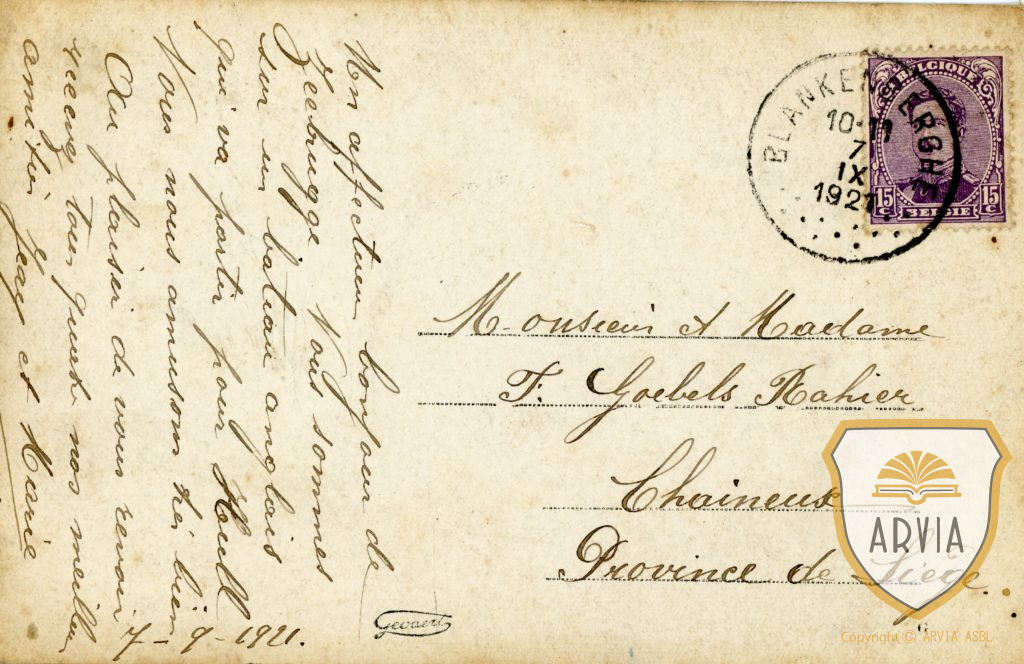 Un affectueu bonjour de
Zeebrugge. Nous sommes
sur un bateau anglais
qui va partir pour Houll
Nous nous amusom très bien
Au plaisir de vous revoir
tous nos meilleu
amitié Jacq et Marie
7-9-1921.
BELGIQUE
15 c 15 c
BELGIE
BLANKENBERGHE
10-11
7
IX
1921
Monsieur et Madame
F. Goebels Rahier
Chaineux
Province de Liège.
Gevaert
ARVIA
Copyright © ARVIA ASBL